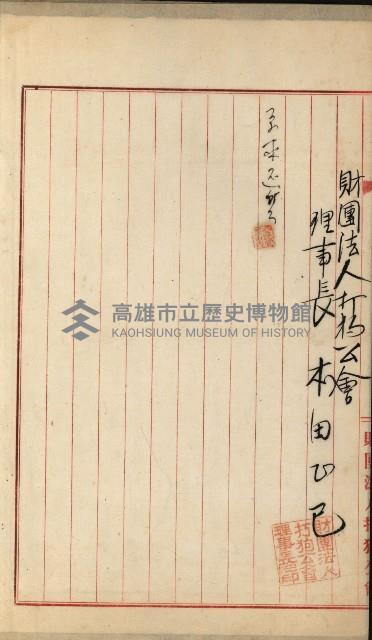 財團法人打狗公會
理事長 本田正已
財團法人
打狗公會
理事長之印
財團法人打狗公會
高雄市立歷史博物館
KAOHSIUNG MUSEUM OF HISTORY